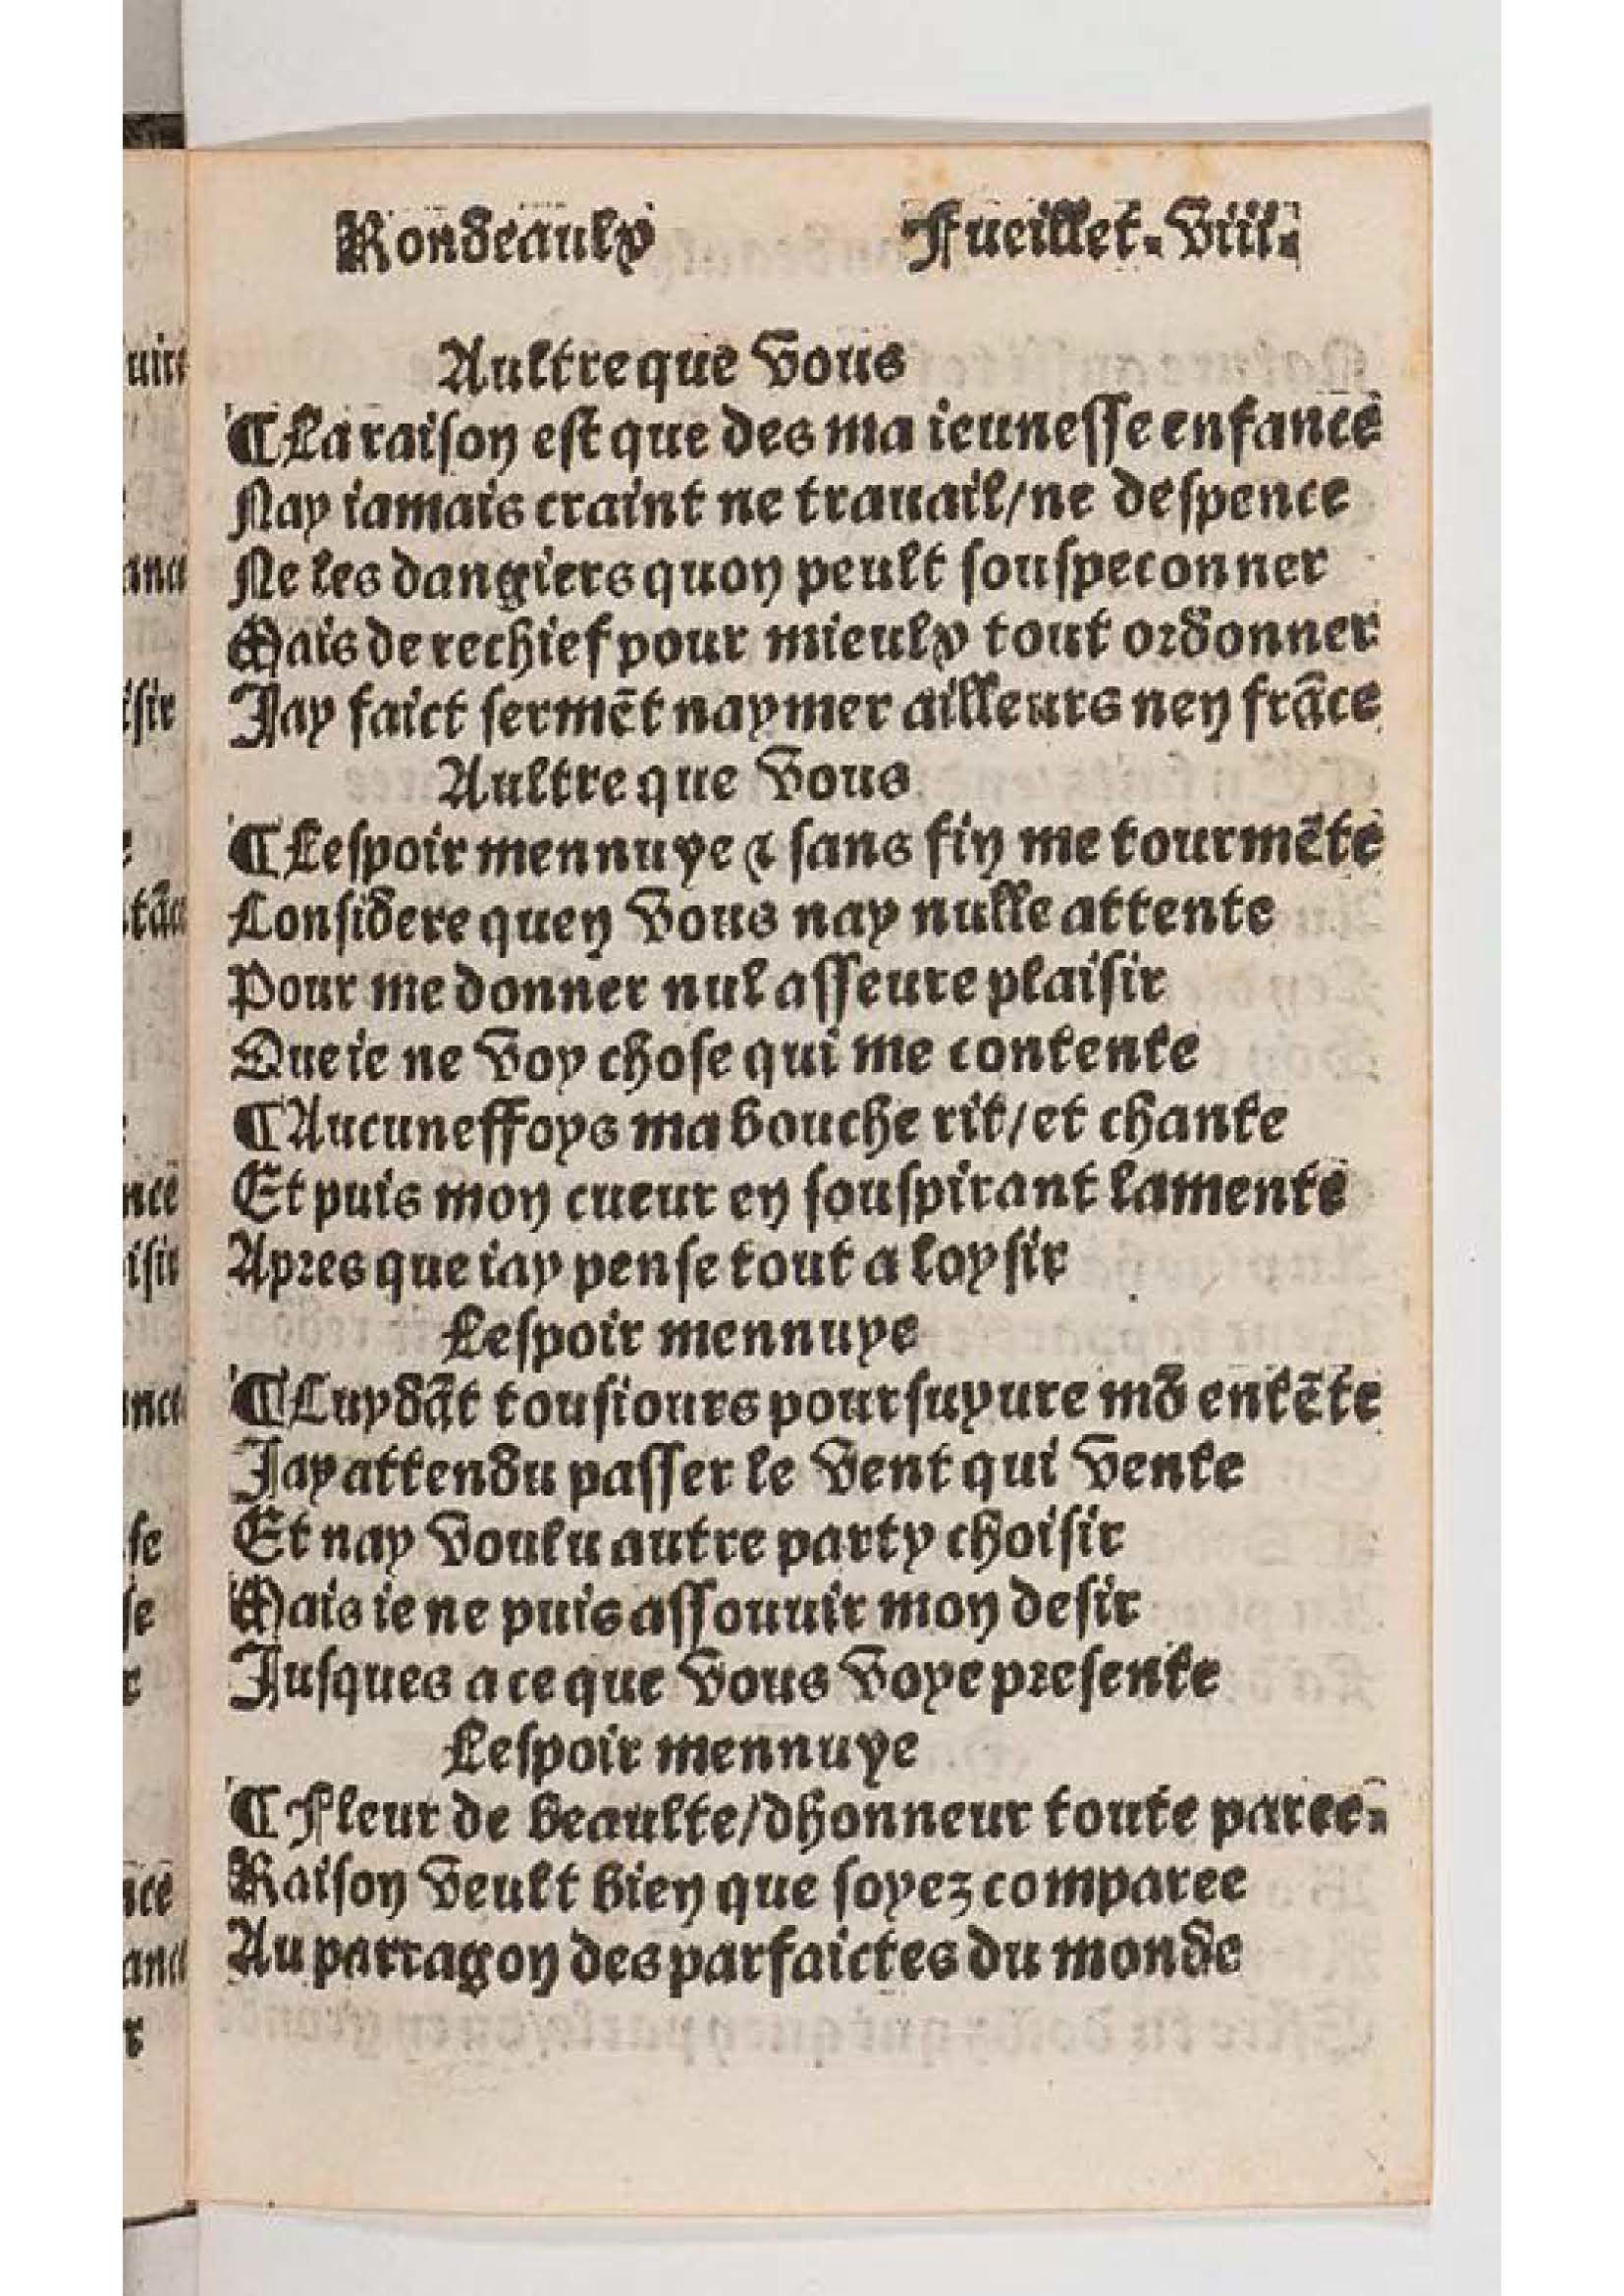 Rondeaulx Fueillet. viii.
Aultre que vous
¶ La raison est que des ma ieunesse enfance
Nay iamais craint ne trauail/ne despence
Ne les dangiers quon peult souspeconner
Mais de rechief pour mieulx tout ordonner
Jay faict sermēt naymer ailleurs nen frāce
Aultre que vous
¶ Lespoir mennuye & sans fin me tourmēte
Considere quen vous nay nulle attente
Pour me donner nul asseure plaisir
Que ie ne voy chose qui me contente
¶ Aucuneffoys ma bouche rit/et chante
Et puis mon cueur en souspirant lamente
Apres que iay pense tout a loysir
Lespoir mennuye
¶ Cuydāt tousiours poursuyure mō entēte
Jay attendu passer le vent qui vente
Et nay voulu autre party choisir
Mais ie ne puis assouuir mon desir
Jusques a ce que vous voye presente
Lespoir mennuye
¶ Fleur de beaulte/dhonneur toute paree.
Raison veult bien que soyez comparee
Au parragon des parfaictes du monde